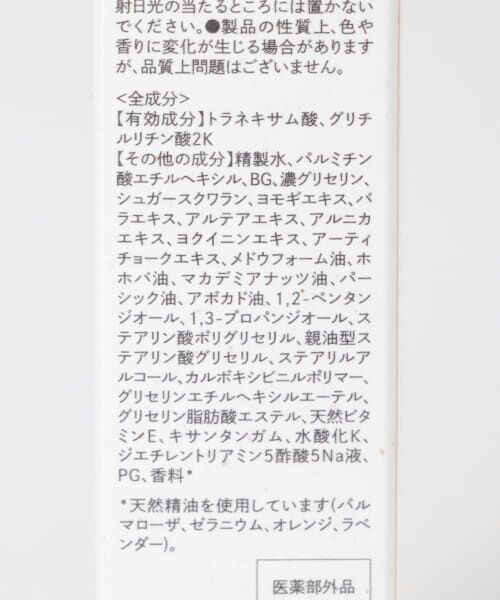 射日光の当たるところには置かない
でください。●製品の性質上、色や
香りに変化が生じる場合があります
が、品質上問題はございません。
<全成分>
【有効成分】トラネキサム酸、グリチ
ルリチン酸2K
【その他の成分】精製水、パルミチン
酸エチルヘキシル、BG、濃グリセリン、
シュガースクワラン、ヨモギエキス、バ
ラエキス、アルテアエキス、アルニカ
エキス、ヨクイニンエキス、アーティ
チョークエキス、メドウフォーム油、ホ
ホバ油、マカデミアナッツ油、パー
シック油、アボカド油、1,2-ペンタン
ジオール、1,3-プロパンジオール、ス
テアリン酸ポリグリセリル、親油型ス
テアリン酸グリセリル、ステアリルア
ルコール、カルボキシビニルポリマー、
グリセリンエチルヘキシルエーテル、
グリセリン脂肪酸エステル、天然ビタ
ミンE、キサンタンガム、水酸化K、
ジエチレントリアミン5酢酸5Na液、
PG、香料*
*天然精油を使用しています(パル
マローザ、ゼラニウム、オレンジ、ラベ
ンダー)。
医薬部外品